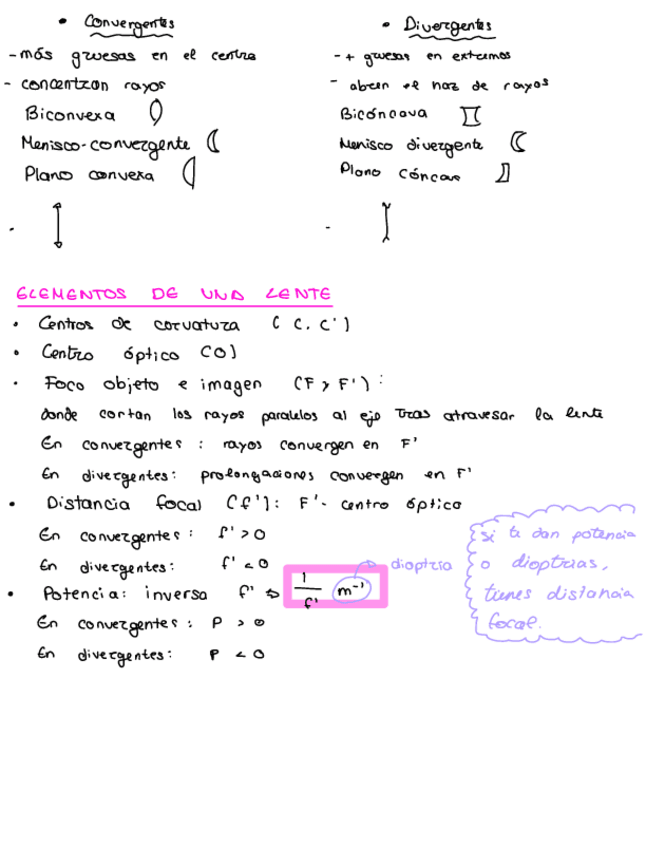 • Convergentes
- más gruesas en el centro
- concentran rayos
Biconvexa
Menisco-convergente
Plano convexa
• Divergentes
- + gruesas en extremos
- abren el haz de rayos
Bicóncava
Menisco divergente
Plano cóncava
ELEMENTOS DE UNA LENTE
• Centros de corvatura (C, C')
• Centro óptico (O)
• Foco objeto e imagen (F y F') :
donde cortan los rayos paralelos al eje tras atravesar la lente
En convergentes : rayos convergen en F'
En divergentes: prolongaciones convergen en F'
• Distancia focal (f'): F'- centro óptico
En convergentes : f' > 0
En divergentes: f' < 0
• Potencia: inversa f' ⇨ 1/f' m⁻¹ → dioptría
En convergentes : P > 0
En divergentes: P < 0
si te dan potencia
o dioptrías,
tienes distancia
focal.